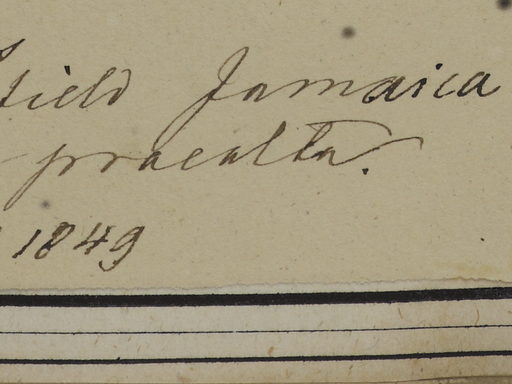 field Jamaica
procalta.
1849